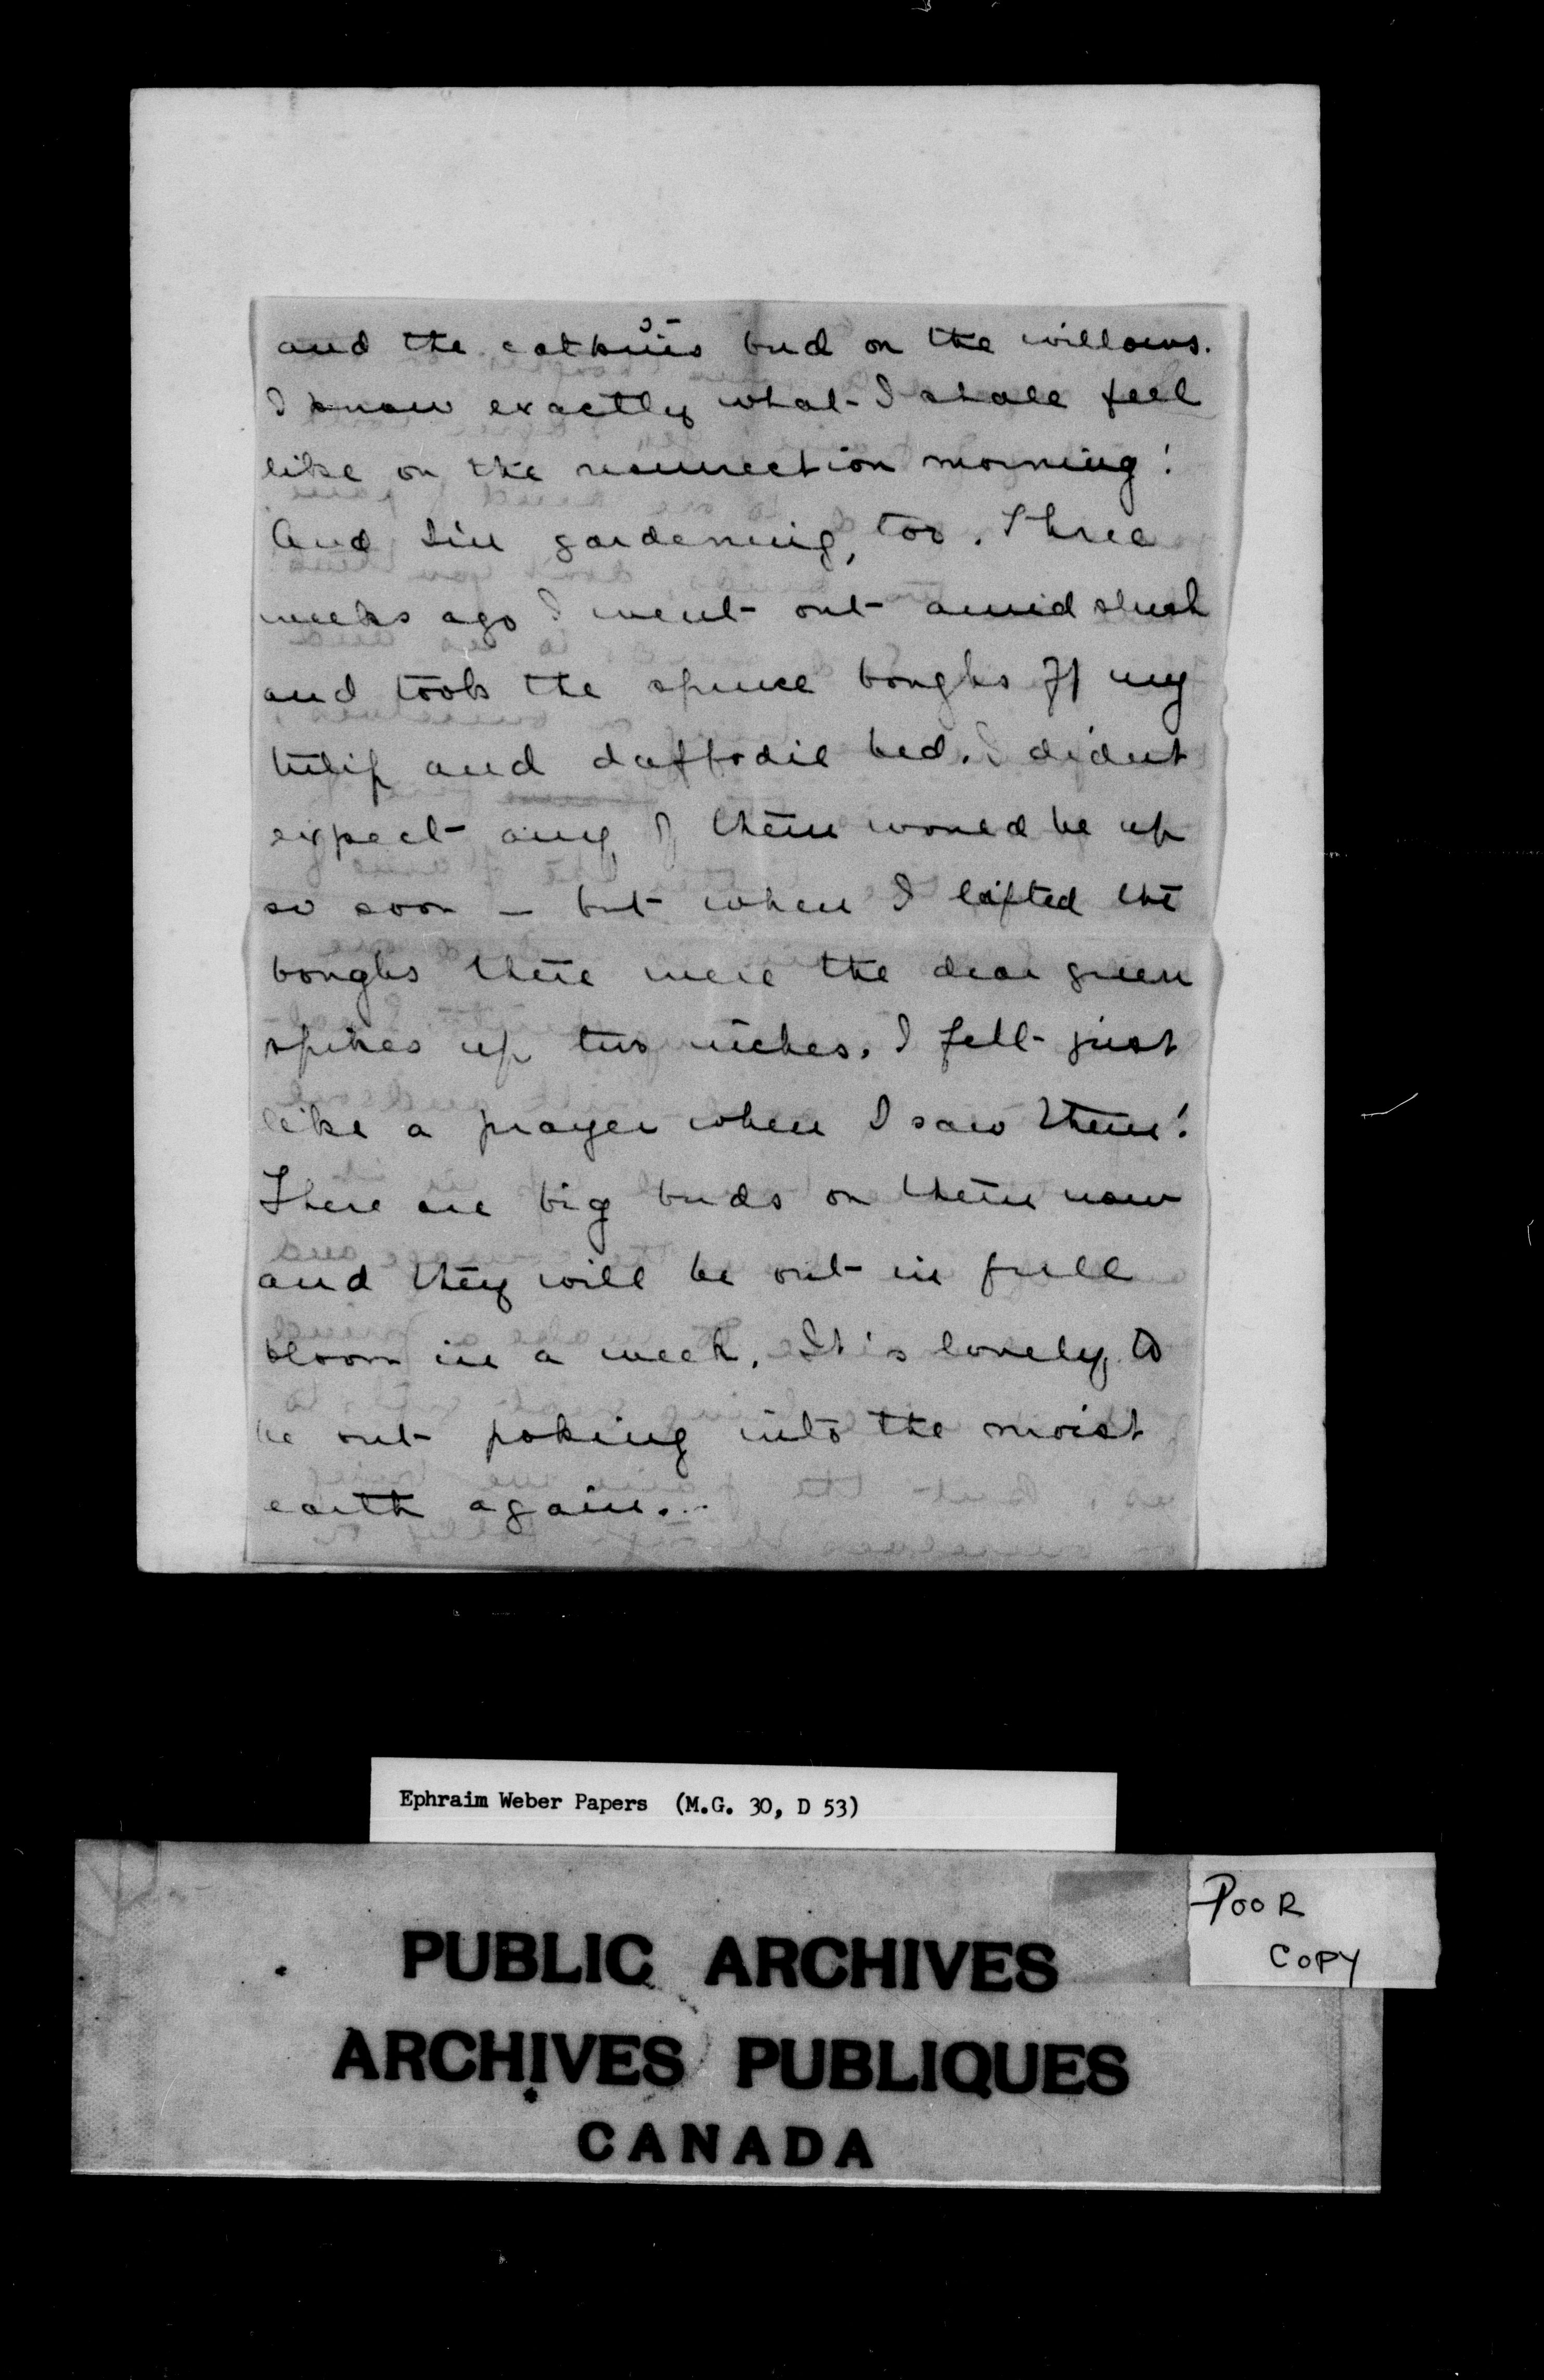 and the catkins bud on the willows.
I know exactly what I shall feel
like on the resurrection morning!
And I'm gardening, too. Three
weeks ago I went out amid slush
and took the spruce boughs off my
tulip and daffodil bed. I didn't
expect any of them would be up
so soon – but when I lifted the
boughs there were the dear green
spikes up two inches. I felt just
like a prayer when I saw them!
There are big buds on them now
and they will be out in full
bloom in a week. It is lovely to
be out poking into the moist
earth again.
Ephraim Weber Papers (M.G. 30, D 53)
POOR
COPY
PUBLIC ARCHIVES
ARCHIVES PUBLIQUES
CANADA